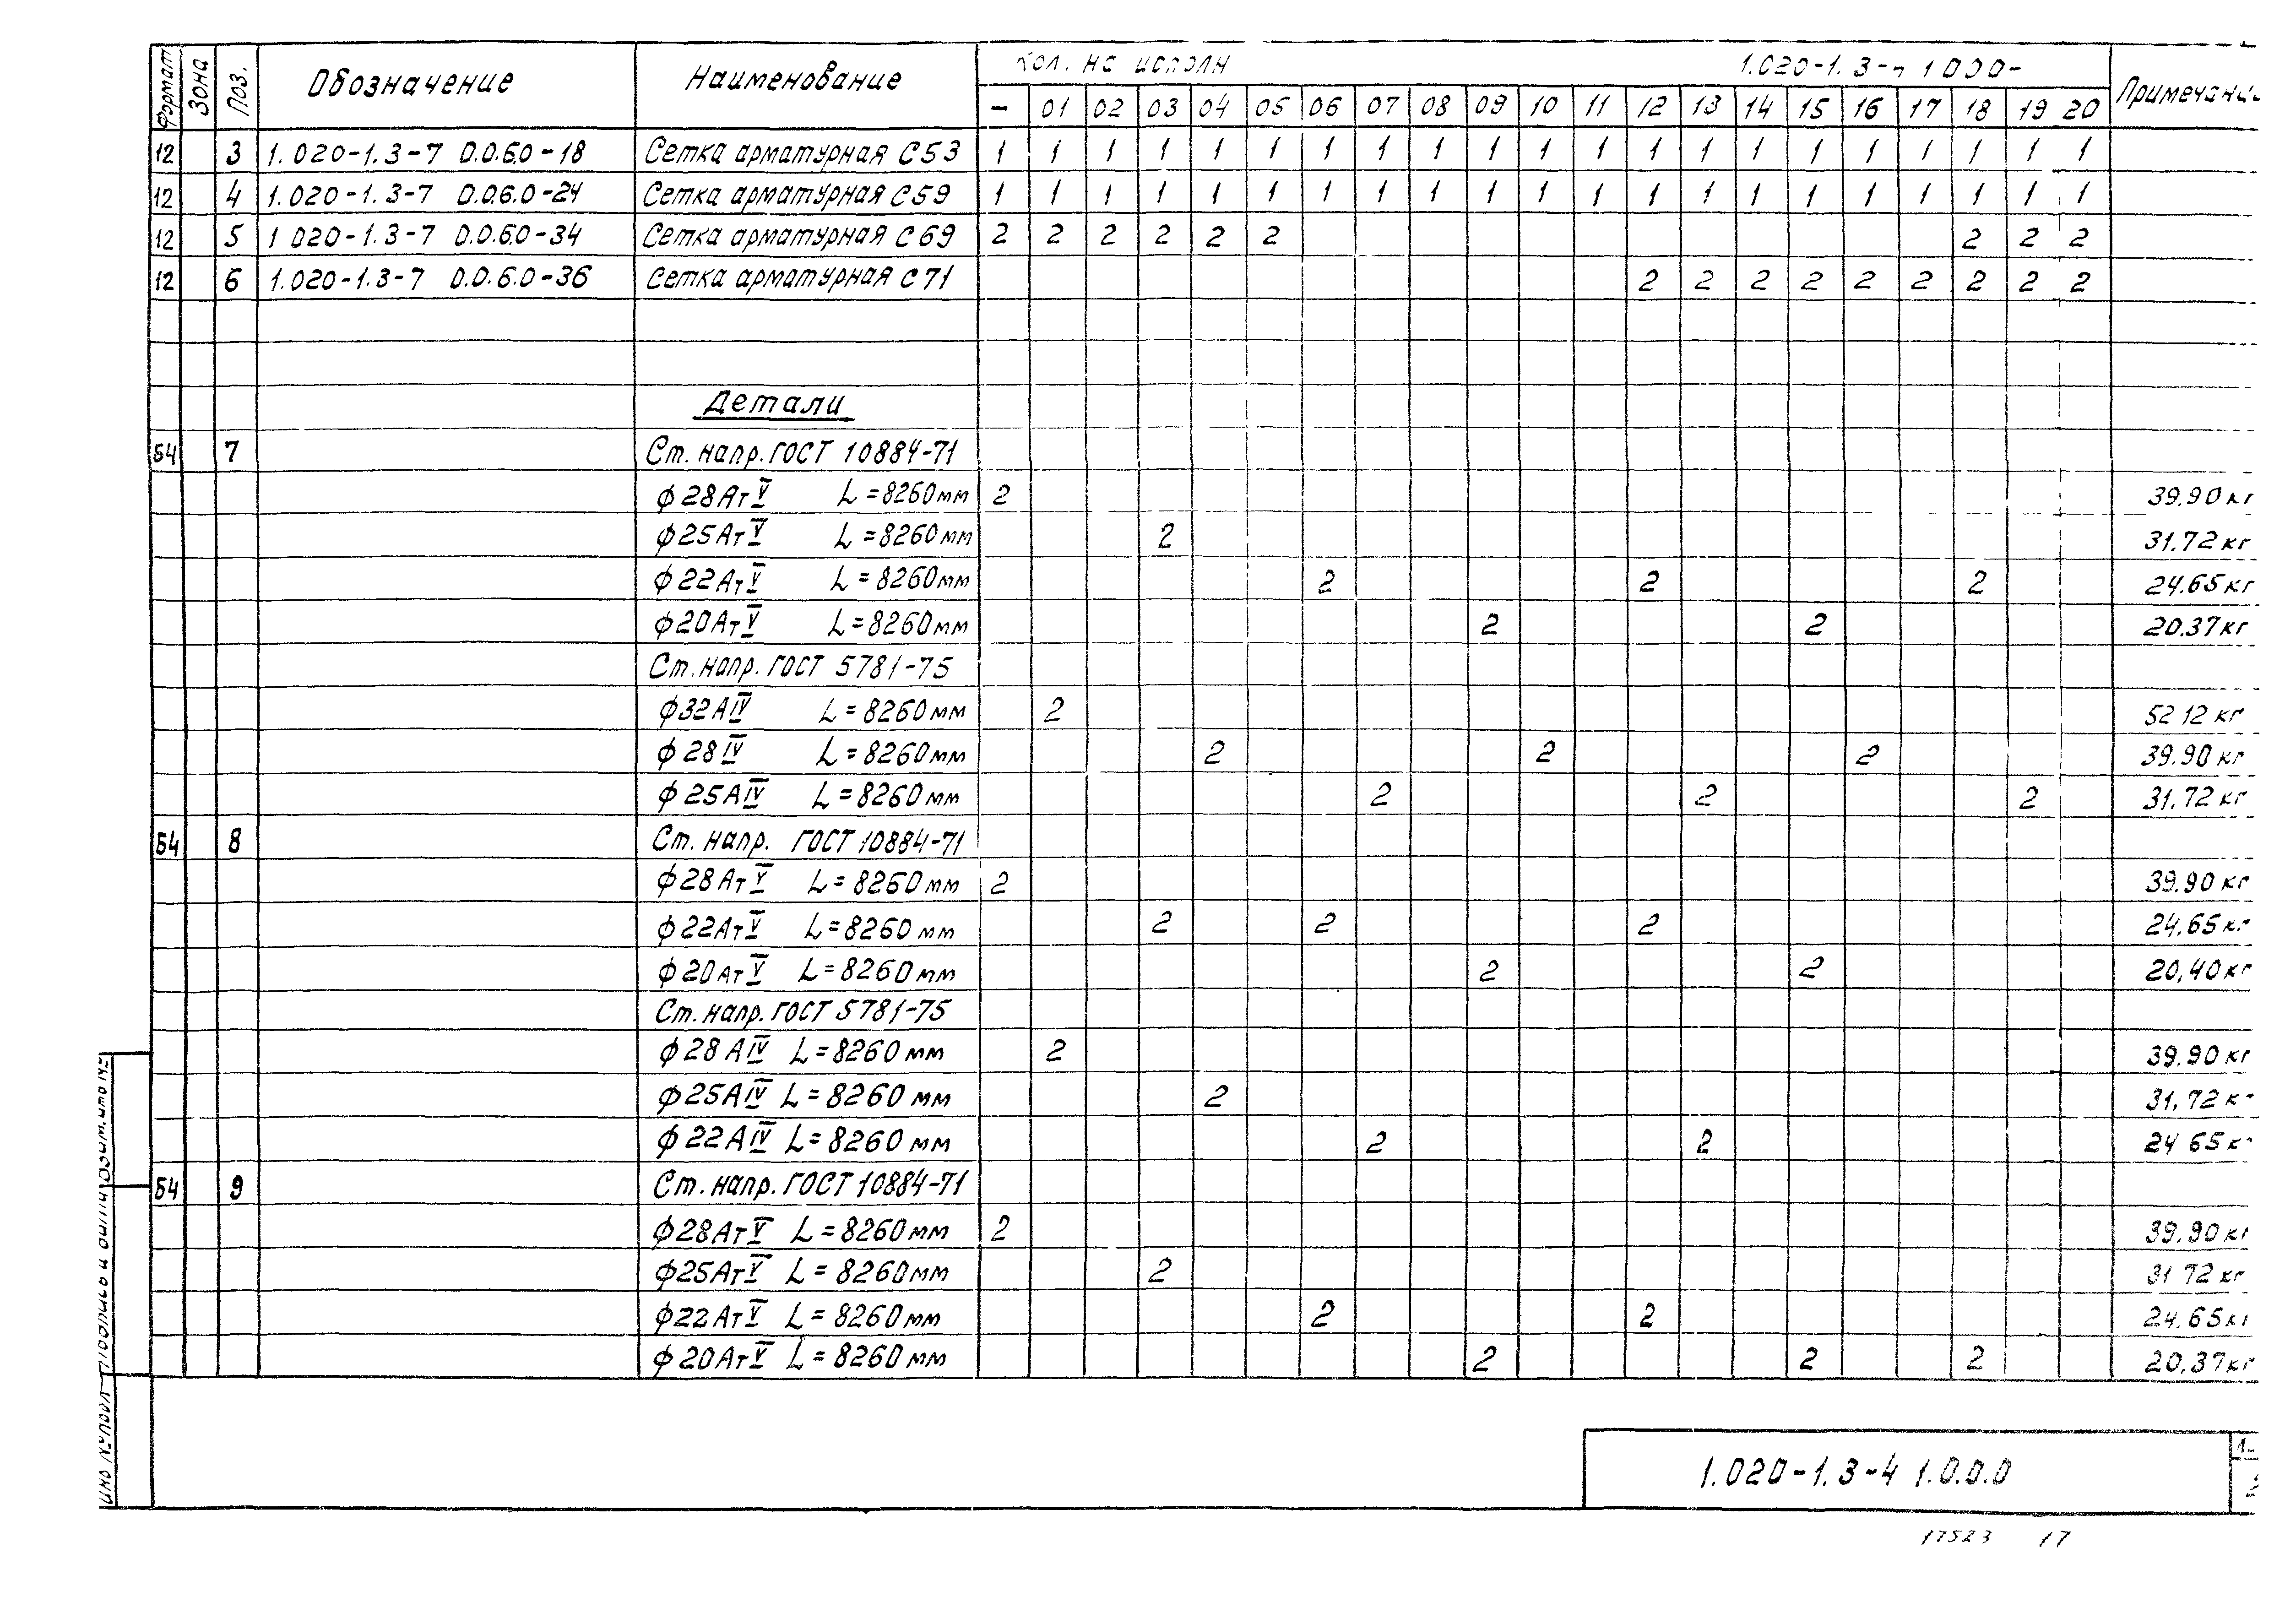 Формат Зона Поз. Обозначение Наименование Кол. на исполн 1.020-1.3- 1000- Примечание
– 01 02 03 04 05 06 07 08 09 10 11 12 13 14 15 16 17 18 19 20
12 3 1.020-1.3-7 0.0.6.0-18 Сетка арматурная С53 1 1 1 1 1 1 1 1 1 1 1 1 1 1 1 1 1 1 1 1 1
12 4 1.020-1.3-7 0.0.6.0-24 Сетка арматурная С59 1 1 1 1 1 1 1 1 1 1 1 1 1 1 1 1 1 1 1 1 1
12 5 1 020-1.3-7 0.0.6.0-34 Сетка арматурная С69 2 2 2 2 2 2 2 2 2
12 6 1.020-1.3-7 0.0.6.0-36 Сетка арматурная С71 2 2 2 2 2 2 2 2 2
Детали
Б4 7 Ст. напр. ГОСТ 10884-71
ф28АтV L=8260мм 2 39.90кг
ф25АтV L=8260мм 2 31.72кг
ф22АтV L=8260мм 2 2 2 24.65кг
ф20АтV L=8260мм 2 2 20.37кг
Ст. напр. ГОСТ 5781-75
ф32АIV L=8260мм 2 52 12 кг
ф28IV L=8260мм 2 2 2 39.90 кг
ф25АIV L=8260мм 2 2 2 31.72 кг
Б4 8 Ст. напр. ГОСТ 10884-71
ф28АтV L=8260мм 2 39.90 кг
ф22АтV L=8260мм 2 2 2 24.65 кг
ф20АтV L=8260мм 2 2 20,40 кг
Ст. напр. ГОСТ 5781-75
ф28АIV L=8260мм 2 39.90 кг
ф25АIV L=8260мм 2 31.72 к
ф22АIV L=8260мм 2 2 24 65 к
Б4 9 Ст. напр. ГОСТ 10884-71
ф28АтV L=8260мм 2 39.90 кг
ф25АтV L=8260мм 2 31 72 кг
ф22АтV L=8260мм 2 2 24.65кг
ф20АтV L=8260мм 2 2 2 20,37кг
1.020-1.3-4 1.0.0.0
17523 17